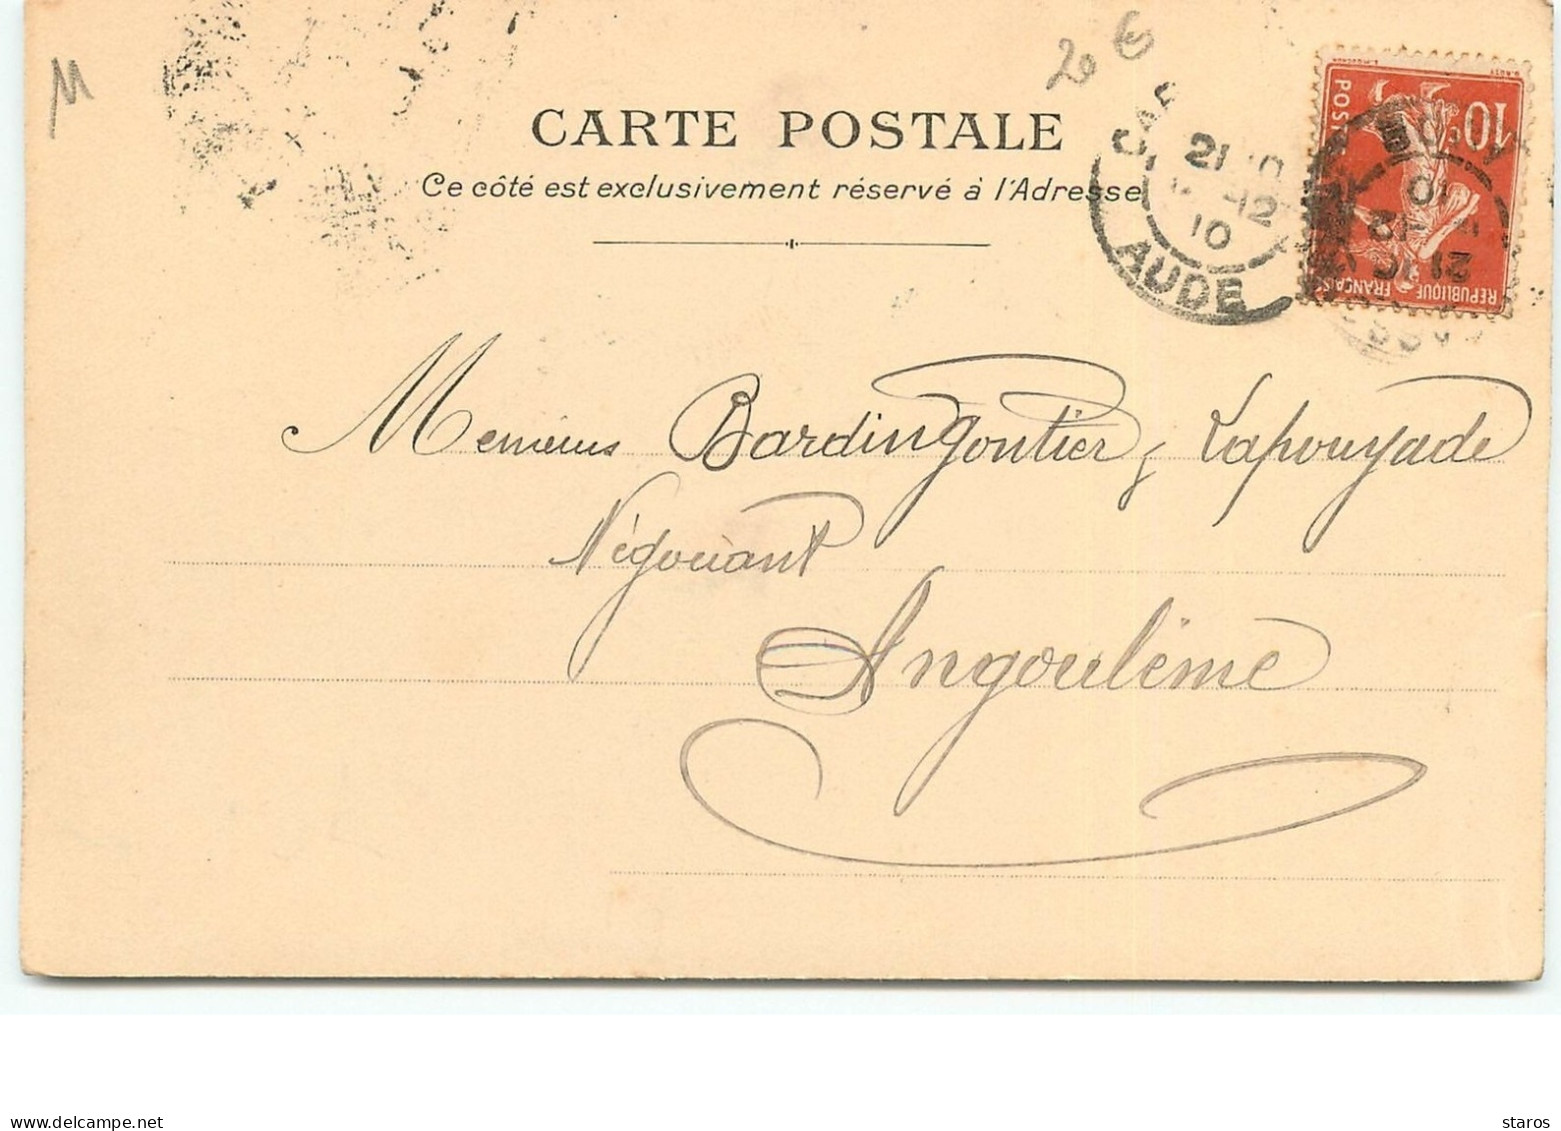 M
2 €
CARTE POSTALE
Ce côté est exclusivement réservé à l'Adresse
10
POS
REPUBLIQUE FRANÇAIS
21
12
10
AUDE
Messieurs Bardin Gontier & Lapouyade
Négociant
Angoulême
www.delcampe.net
staros